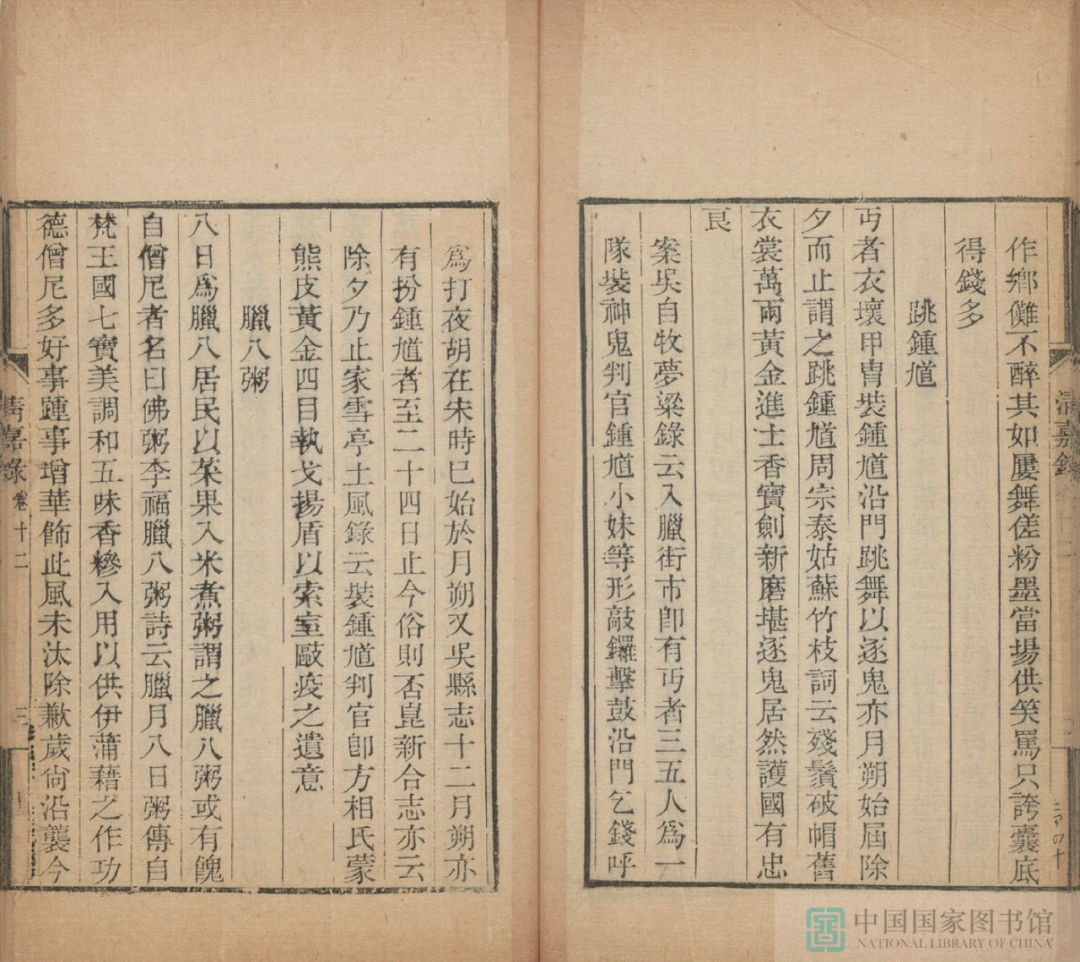 作鄉儺不醉其如屢舞傞粉墨當場供笑罵只誇囊底
得錢多
跳鍾馗
丐者衣壞甲胄裝鍾馗沿門跳舞以逐鬼亦月朔始屆除
夕而止謂之跳鍾馗周宗泰姑蘇竹枝詞云殘鬚破帽舊
衣裳萬兩黃金進士香寶劍新磨堪逐鬼居然護國有忠
良
案吳自牧夢粱錄云入臘街市卽有丐者三五人爲一
隊裝神鬼判官鍾馗小妹等形敲鑼擊鼓沿門乞錢呼
爲打夜胡在宋時已始於月朔又吳縣志十二月朔亦
有扮鍾馗者至二十四日止今俗則否崑新合志亦云
除夕乃止家雪亭土風錄云裝鍾馗判官卽方相氏蒙
熊皮黃金四目執戈揚盾以索室毆疫之遺意
臘八粥
八日爲臘八居民以菜果入米煮粥謂之臘八粥或有餽
自僧尼者名曰佛粥李福臘八粥詩云臘月八日粥傳自
梵王國七寶美調和五味香糝入用以供伊蒲藉之作功
德僧尼多好事踵事增華飾此風未汰除歉歲尙沿襲今
清嘉錄
卷十二
三
中国国家图书馆
NATIONAL LIBRARY OF CHINA